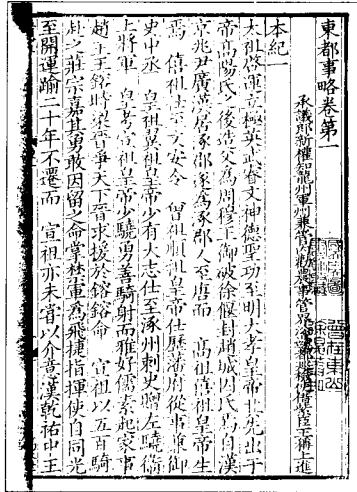 東都事略卷第一
承議郎新權知龍州軍州兼管內勸農事管界沿邊都巡檢使借紫臣王稱上進
本紀一
太祖啓運立極英武睿文神德聖功至明大孝皇帝其先出于
帝高陽氏之後造父為周穆王御破徐偃封趙城因氏焉自漢
京兆尹廣漢居涿郡遂為涿郡人至唐而 高祖僖祖皇帝生
焉 僖祖仕至文安令 曾祖順祖皇帝仕歷藩府從事兼御
史中丞 皇祖翼祖皇帝少有大志仕至涿州刺史贈左驍衛
上將軍 皇考宣祖皇帝少驍勇善騎射而雅好儒素起家事
趙王王鎔時梁晉爭天下晉求援於鎔鎔命 宣祖以五百騎
赴之莊宗嘉其勇敢因留之命掌禁軍為飛捷指揮使自同光
至開運踰二十年不遷而 宣祖亦未嘗以介意漢乾祐中王